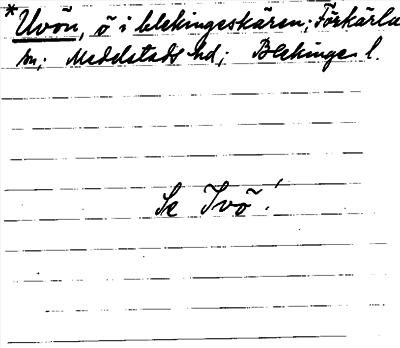 * Uvön, ö i blekingeskären; Förkärla
sn; Medelstads hd; Blekinge l.
Se Ivö!